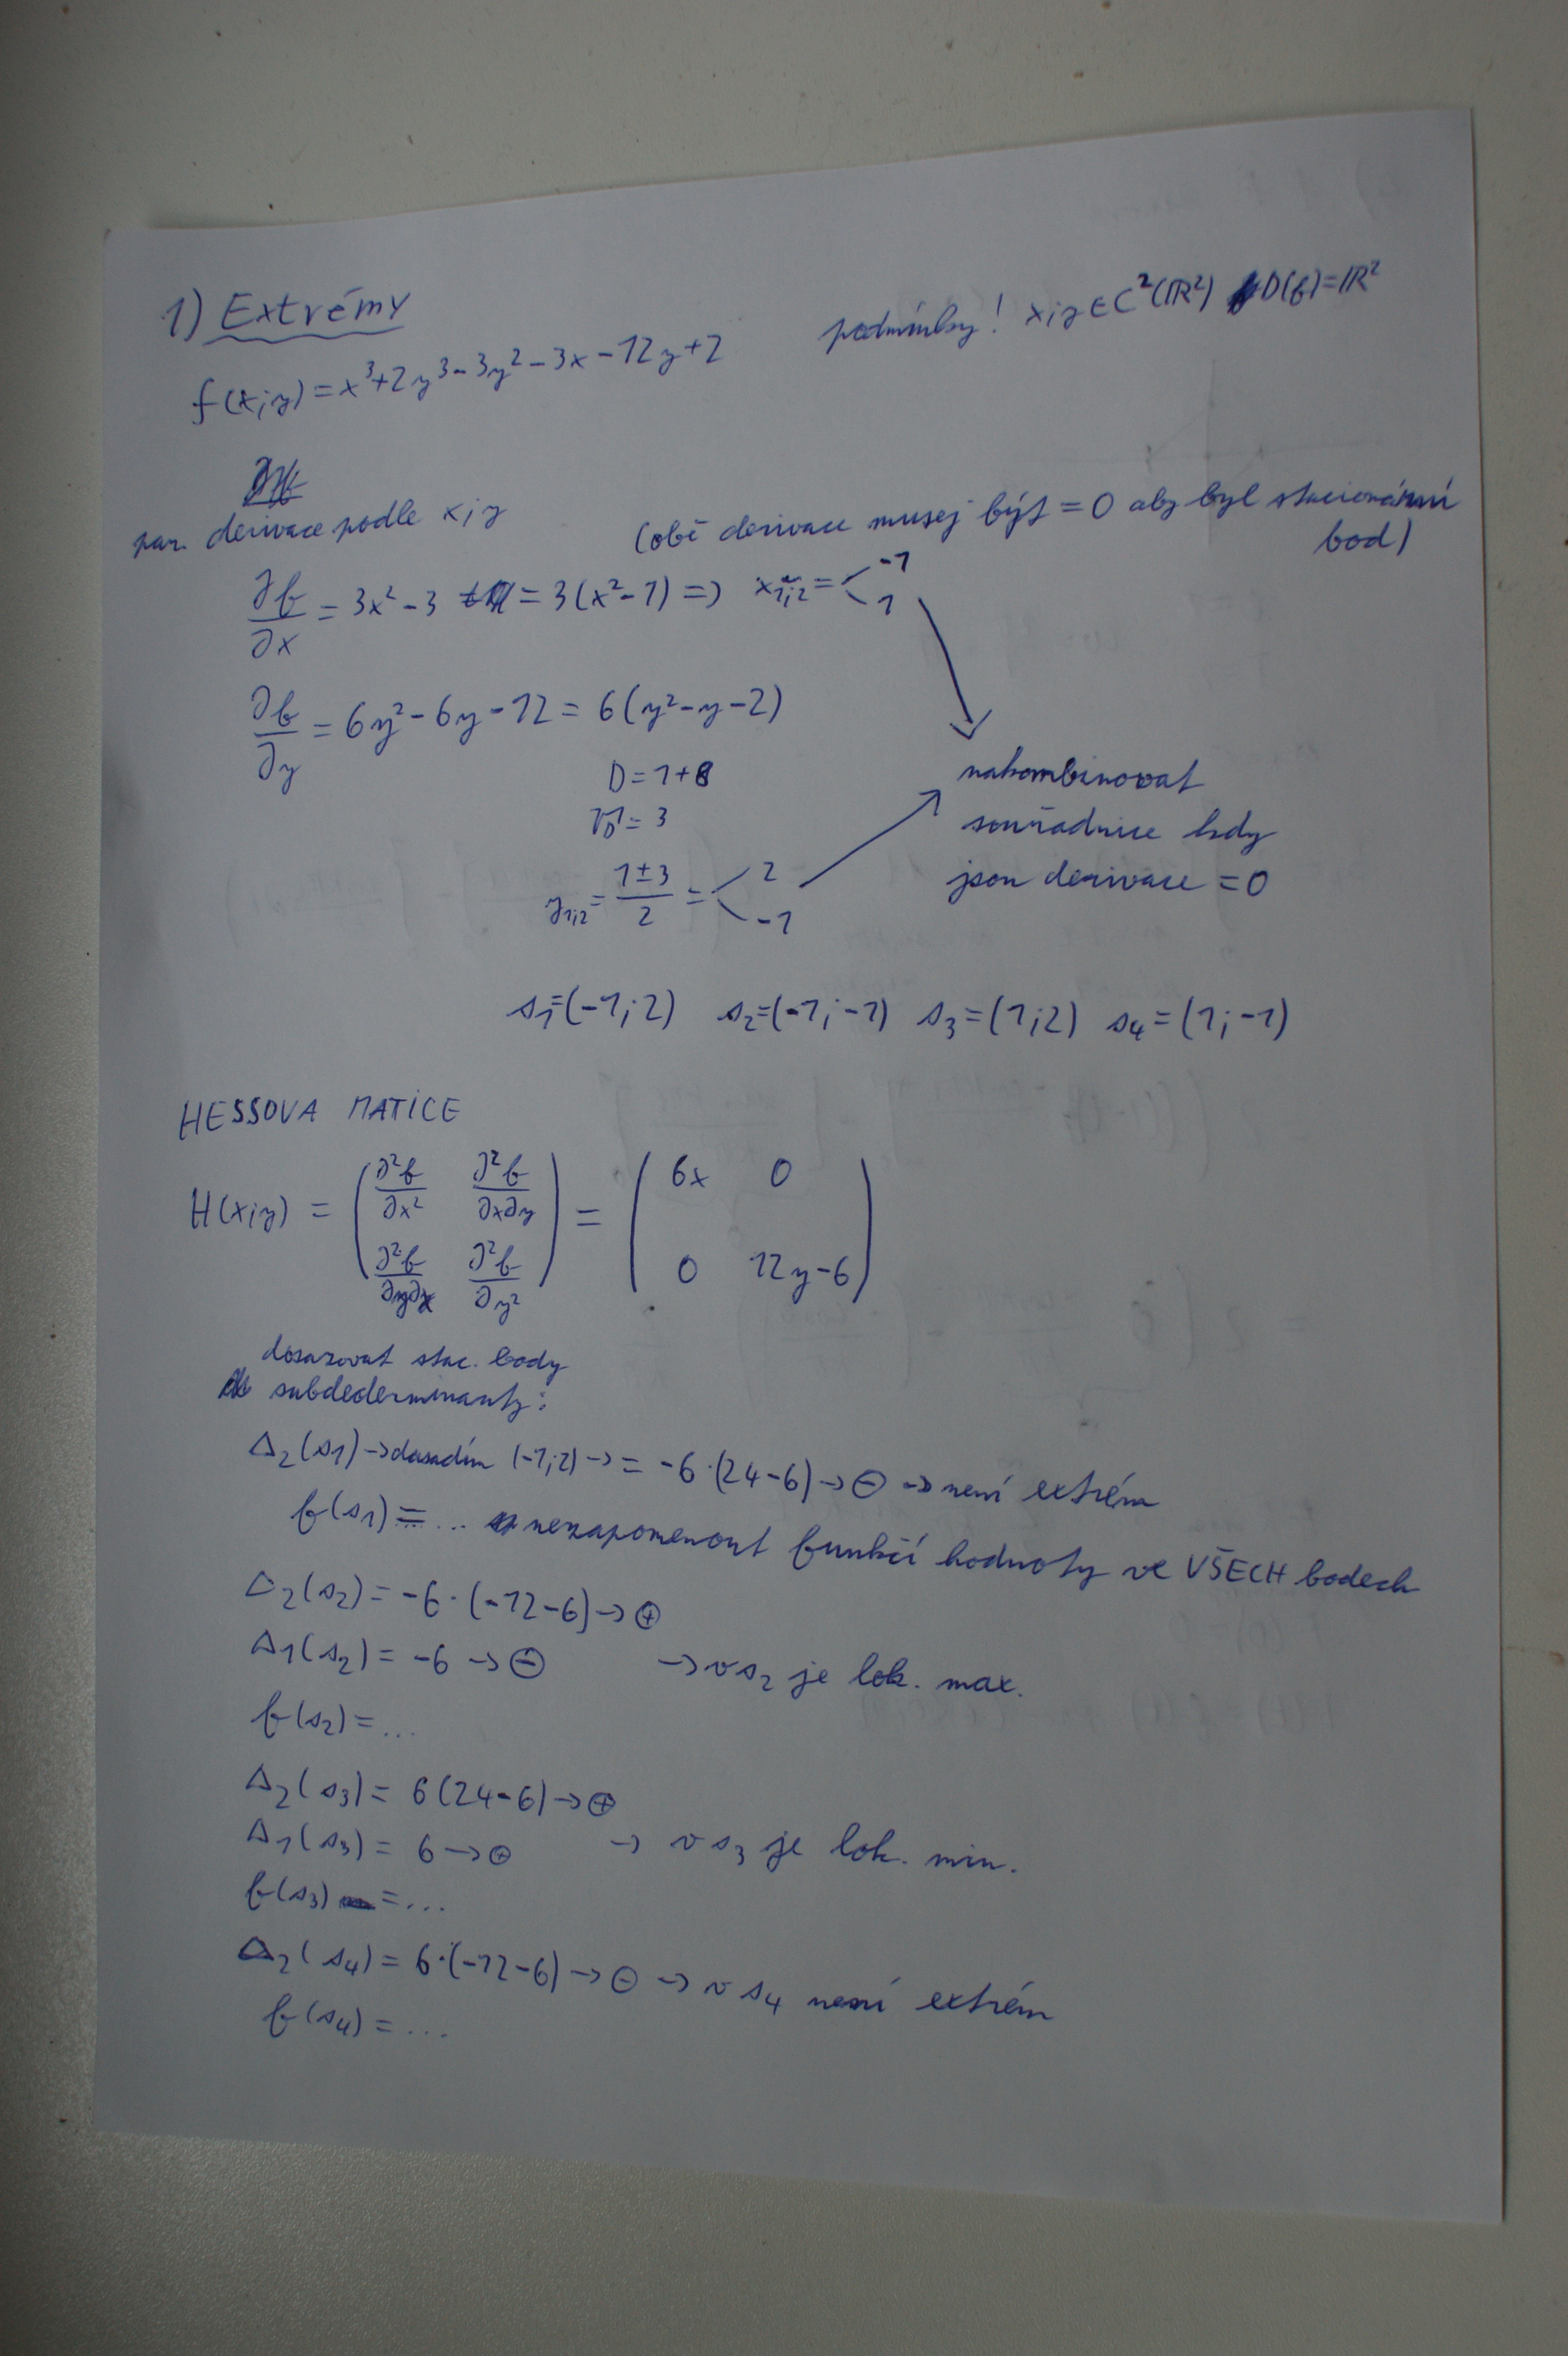 1) Extrémy
podmínky! x;y ∈ C²(ℝ²) D(f)=ℝ²
f(x;y) = x³+2y³-3y²-3x-12y+2
par. derivace podle x;y
(obě derivace musej být =0 aby byl stacionární
bod)
∂f/∂x = 3x²-3 = 3(x²-1) => x₁;₂ = < -1 1
∂f/∂y = 6y²-6y-12 = 6(y²-y-2)
D=1+8
√D = 3
y₁;₂ = (1±3)/2 = < 2 -1
nakombinovat
souřadnice kdy
jsou derivace =0
s₁=(-1;2) s₂=(-1;-1) s₃=(1;2) s₄=(1;-1)
HESSOVA MATICE
H(x;y) = ( ∂²f/∂x² ∂²f/∂x∂y ; ∂²f/∂y∂x ∂²f/∂y² ) = ( 6x 0 ; 0 12y-6 )
dosazovat stac. body
subdederminanty:
Δ₂(s₁) → dosadím (-1;2) → = -6·(24-6) → ⊖ → není extrém
f(s₁) = ... nezapomenout funkčí hodnoty ve VŠECH bodech
Δ₂(s₂) = -6·(-12-6) → ⊕
Δ₁(s₂) = -6 → ⊖ → v s₂ je lok. max.
f(s₂) = ...
Δ₂(s₃) = 6(24-6) → ⊕
Δ₁(s₃) = 6 → ⊕ → v s₃ je lok. min.
f(s₃) = ...
Δ₂(s₄) = 6·(-12-6) → ⊖ → v s₄ není extrém
f(s₄) = ...